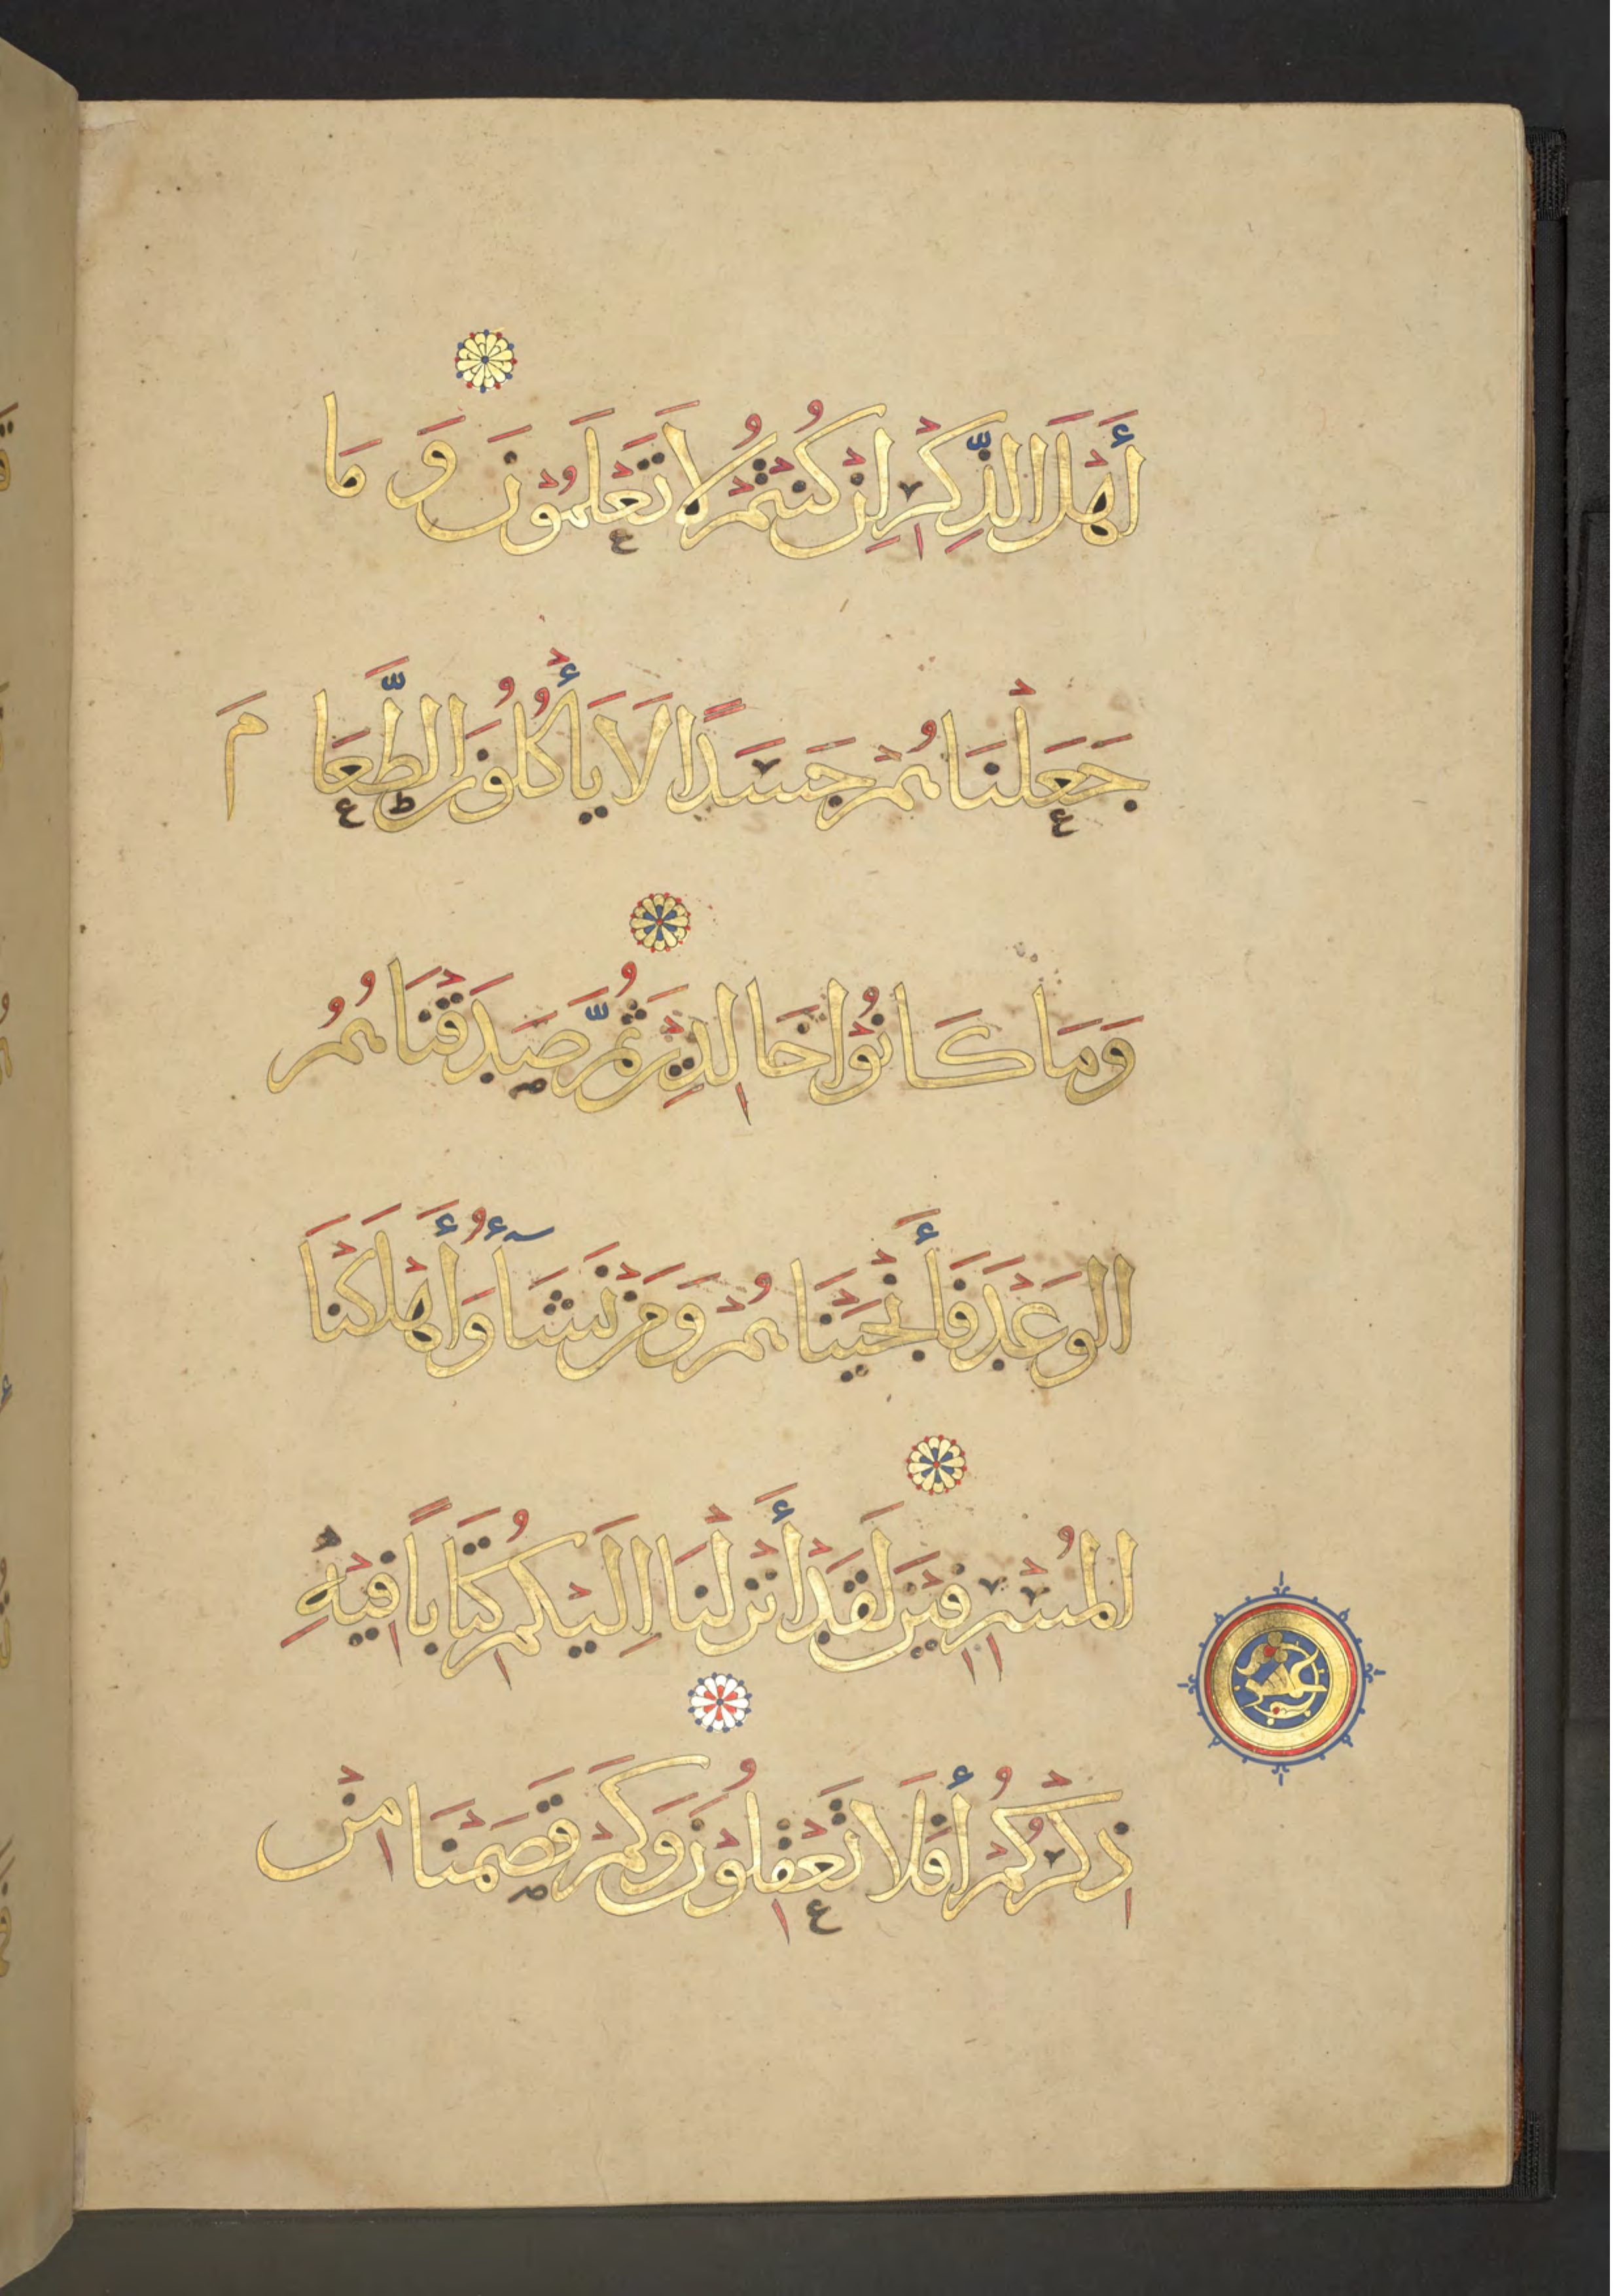 أَهْلَ الذِّكْرِ اِنْ كُنْتُمْ لَا تَعْلَمُوْنَ وَ مَا
جَعَلْنَا هُمْ جَسَدًا لَا يَأْكُلُوْنَ الطَّعَا مَ
وَمَا كَا نُوْا خَا لِدِيْنَ ثُمَّ صَدَقْنَا هُمُ
الوَعْدَ فَأَنْجَيْنَا هُمْ وَمَنْ نَشَآءُ وَأَهْلَكْنَا
المُسْرِفِيْنَ لَقَدْ أَنْزَلْنَا اِلَيْكُمْ كِتَابًا فِيْهِ
ذِكْرُكُمْ أَفَلَا تَعْقِلُوْنَ وَكَمْ قَصَمْنَا مِنْ